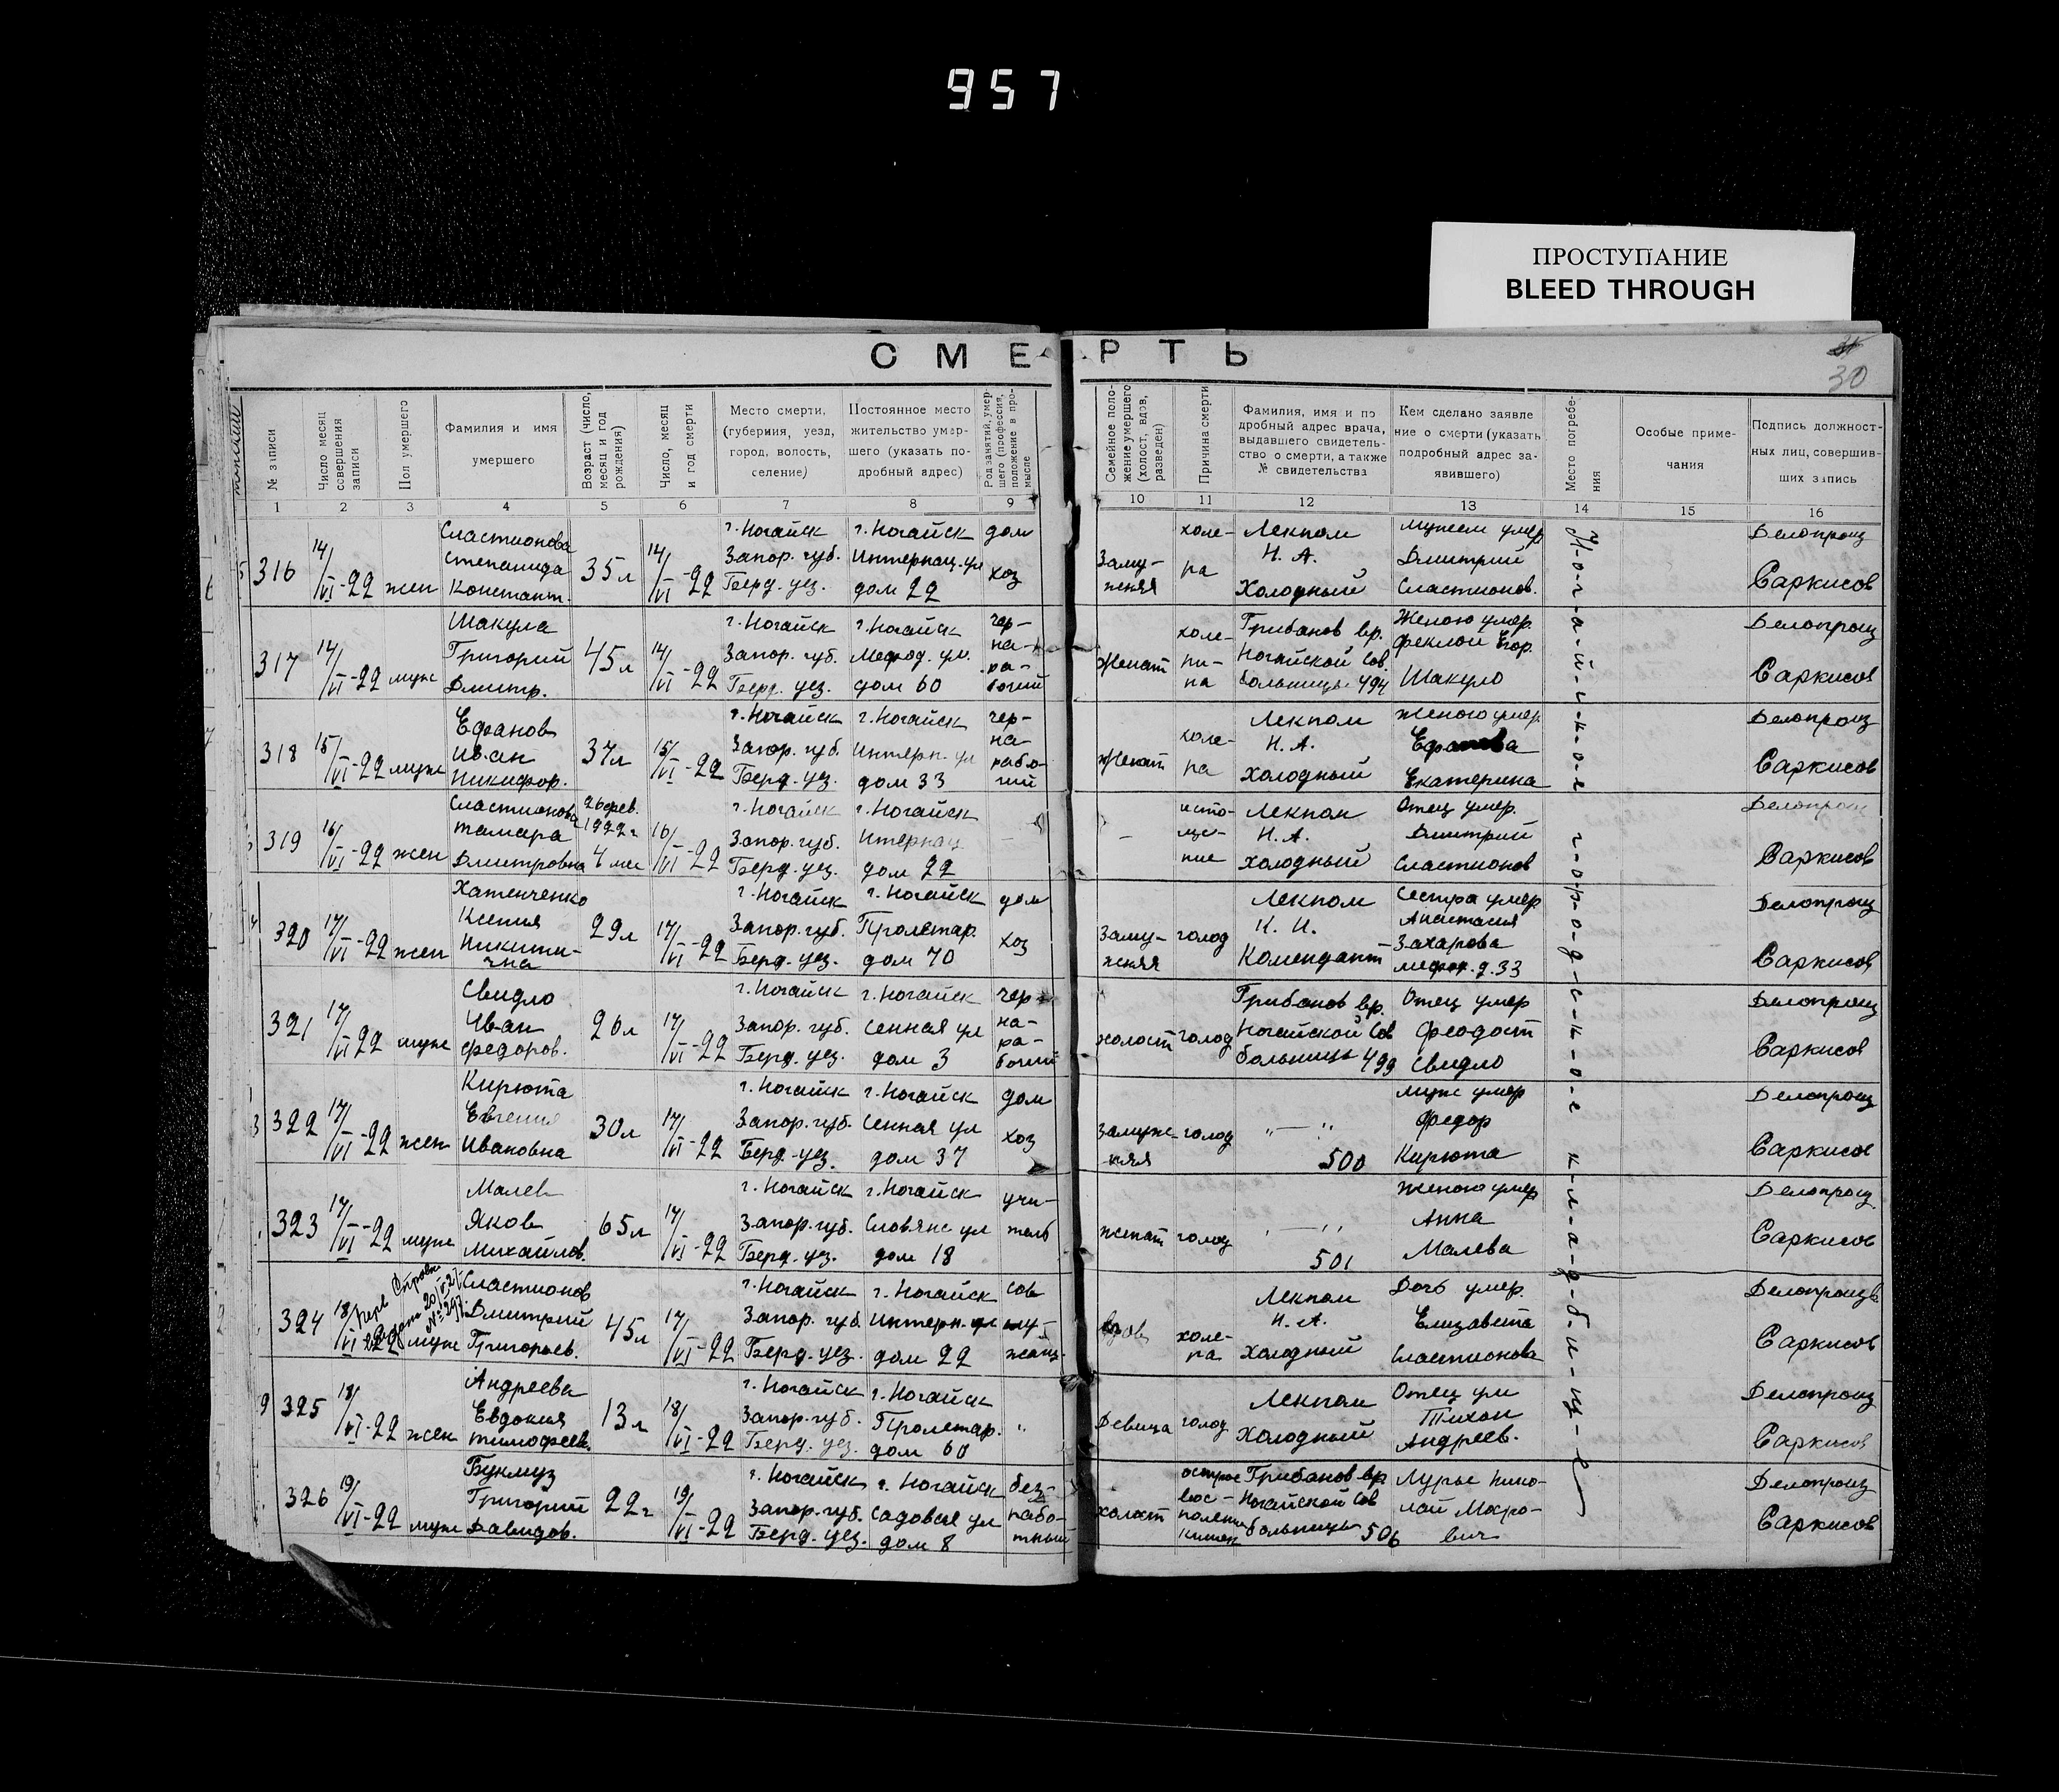 957
ПРОСТУПАНИЕ
BLEED THROUGH
СМЕРТЬ
30
№ записи
Число месяц совершения записи
Пол умершего
Фамилия и имя умершего
Возраст (число, месяц и год рождения)
Число, месяц и год смерти
Место смерти, (губерния, уезд, город, волость, селение)
Постоянное место жительство умершего (указать подробный адрес)
Род занятий, умершего (профессия, положение в промысле
Семейное положение умершего (холост, вдов, разведен)
Причина смерти
Фамилия, имя и подробный адрес врача, выдавшего свидетельство о смерти, а также № свидетельства
Кем сделано заявление о смерти (указать подробный адрес заявившего)
Место погребения
Особые примечания
Подпись должностных лиц, совершивших запись
1 2 3 4 5 6 7 8 9 10 11 12 13 14 15 16
316 14/VI-22 жен Сластионова Степанида Констант. 35 л 14/VI-22 г. Ногайск Запор. губ. Берд. уез. г. Ногайск Интернац. ул дом 22 дом хоз Замужняя холера Лекпом Н. А. Холодный Мужем умер Дмитрий Сластионов. Делопроиз Саркисов
317 14/VI-22 муж Шакула Григорий Дмитр. 45 л 14/VI-22 г. Ногайск Запор. губ. Берд. уез. г. Ногайск Мефод. ул. дом 60 чернорабочий Женат Грибанов вр. Ногайской Сов больницы 494 Женою умер. Феклой Егор. Шакуло Делопроиз Саркисов
318 15/VI-22 муж Ефанов Иван Никифор. 37 л 15/VI-22 г. Ногайск Запор. губ. Берд. уез. г. Ногайск Интерн. ул дом 33 Женат холера Лекпом Н. А. Холодный Женою умер. Ефанова Екатерина Делопроиз Саркисов
319 16/VI-22 жен Сластионова Тамара Дмитровна 26 фев. 1922 г 4 мес 16/VI-22 г. Ногайск Запор. губ. Берд. уез. г. Ногайск Итернац дом 22 – – истощение Лекпом Н. А. Холодный Отец умер. Дмитрий Сластионов Делопроиз Саркисов
320 17/VI-22 жен Хатенченко Ксения Никитична 29 л 17/VI-22 г. Ногайск Запор. губ. Берд. уез. г. Ногайск Пролетар. дом 70 дом хоз Замужняя голод Лекпом К. И. Комендант Сестра умер Анастасия Захарова Мефод. д. 33 Делопроиз Саркисов
321 17/VI-22 муж Свидло Иван Федоров. 20 л 17/VI-22 г. Ногайск Запор. губ. Берд. уез. г. Ногайск Сенная ул дом 3 чернорабочий холост голод Грибанов вр. Ногайской Сов больницы 499 Отец умер Феодост Свидло Делопроиз Саркисов
322 17/VI-22 жен Кирюта Евгения Ивановна 30 л 17/VI-22 г. Ногайск Запор. губ. Берд. уез. г. Ногайск Сенная ул дом 37 дом хоз замужняя голод „ — „ 500 муж умер Федор Кирюта Делопроиз Саркисов
323 17/VI-22 муж Малев Яков Михайлов. 65 л 17/VI-22 г. Ногайск Запор. губ. Берд. уез. г. Ногайск Словянс ул дом 18 учитель женат голод „ — „ 501 Женою умер Анна Малева Делопроиз Саркисов
324 18/VI-22 муж Сластионов Дмитрий Григорьев. 45 л 17/VI-22 г. Ногайск Запор. губ. Берд. уез. г. Ногайск Интерн. ул дом 22 вдов холера Лекпом Н. А. Холодный Дочь умер. Елизавета Сластионова Делопроизв Саркисов
325 18/VI-22 жен Андреева Евдокия Тимофеев. 13 л 18/VI-22 г. Ногайск Запор. губ. Берд. уез. г. Ногайск Пролетар. дом 60 „ Девица голод Лекпом Холодный Отец ум Тихон Андреев. Делопроиз Саркисов
326 19/VI-22 муж Буклуз Григорий Давидов. 22 г 19/VI-22 г. Ногайск Запор. губ. Берд. уез. г. Ногайск Садовая ул дом 8 безработный холост Грибанов вр Ногайской Сов больницы 506 Делопроиз Саркисов
Н-о-г-а-й-с-к-о-е г-о-р-о-д-с-к-о-е к-л-а-д-б-и-щ-е